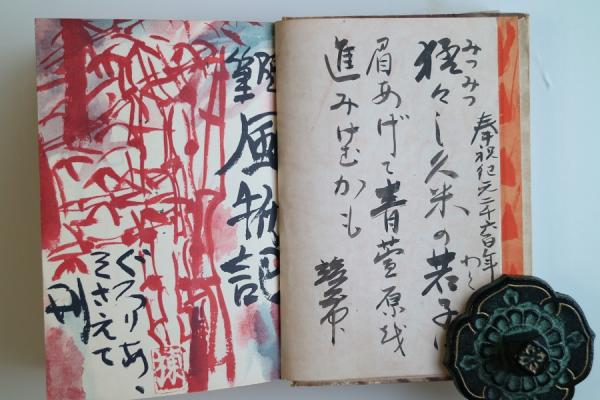 奉祝紀元二千六百年
みつみつ わく
々し久米の若子
眉あげて青菅原
進みけむかも
風物記
ぐろりあ、
そさえて
刊